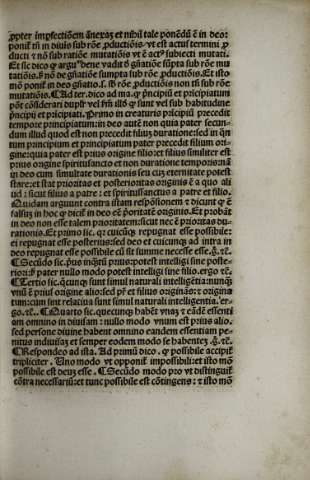 ꝓpter imꝑfectiõem ãnexaȝ et nihil tale ponẽdũ ẽ in deo:
ponit̃ tñ in diuis sub rõe ꝓductiõis vt est actus termini ꝓ
ducti ⁊ nõ sub ratiõe mutatiõis vt ẽ actꝰ subiecti mutati.
Et sic dico ꝙ arguᵗ bene vadit ð gñatiõe sũpta sub rõe mu
tatiõis. nõ ðe gñatiõe sumpta sub rõe ꝓductiõis. Et isto
mõ ponit̃ in deo gñatio. s. sб rõe ꝓductiõis non tñ sub rõe
mutatiõis. Ad ter. dico ad ma. ꝙ pncipiũ et pricipiatum
põt cõsiderari duplr vel ꝙm illð ꝙ sunt vel sub habitudine
pncipij et pricipiati. Primo in creaturis pricipiũ precedit
tempore principiatum: in deo autẽ non quia pater secun-
dum illud quod est non precedit filiuȝ duratione: sed in qñ
tum principium et principiatum pater precedit filium ori-
gine: quia pater est prius origine filio: et filius similiter est
prius origine spiritusancto et non duratione temporis: nã
in deo cum simultate durationis seu eius eternitate potest
stare: et stat prioritas et posterioritas originis ẽ a quo ali
ud: sicut filius a patre: et spiritussanctus a patre et filio.
Quidam arguunt contra istam respõsionem ⁊ dicunt ꝙ ẽ
falsuȝ in hoc ꝙ dicit̃ in deo eẽ poritatẽ originis. Et probãt
in deo non esse talem prioritatem: sicut nec ẽ ibi prioritas du-
rationis. Et primo sic. ꝙ cuicũqȝ repugnat esse possibile:
ei repugnat esse posterius: sed deo et cuicunqȝ ad intra in
deo repugnat esse possibile cũ sit summe necesse esse. g̃. ⁊c̃.
Secũdo sic. pus inqȝti prius: potest intelligi sine poste-
riori: pater nullo modo potest intelligi sine filio. ergo ⁊c̃.
Tertio sic. q̃cunqȝ sunt simul naturali intelligẽtia: nunqȝ
vnũ ẽ prius origine alio: sed pr̃ et filius originãs: ⁊ origina
tum: cum sint relatiua sunt simul naturali intelligentia. er-
go. ⁊c̃. Quarto sic. quecunqȝ habẽt vnaȝ ⁊ eãdẽ essenti
am omnino in diuisam: nullo modo vnum est prius alio.
sed persone diuine habent omnino eandem essentiam pe-
nitus indiuisaȝ et semper eodem modo se habentẽ. g̃. ⁊c̃.
Respondeo ad ista. Ad primũ dico. ꝙ possibile accipit̃
tripliciter. Uno modo vt opponit̃ impossibili: et isto mõ
possibile est deuȝ esse. Secũdo modo pro vt distinguit̃
cõtra necessariũ: et tunc possibile est cõtingens: ⁊ isto mõ